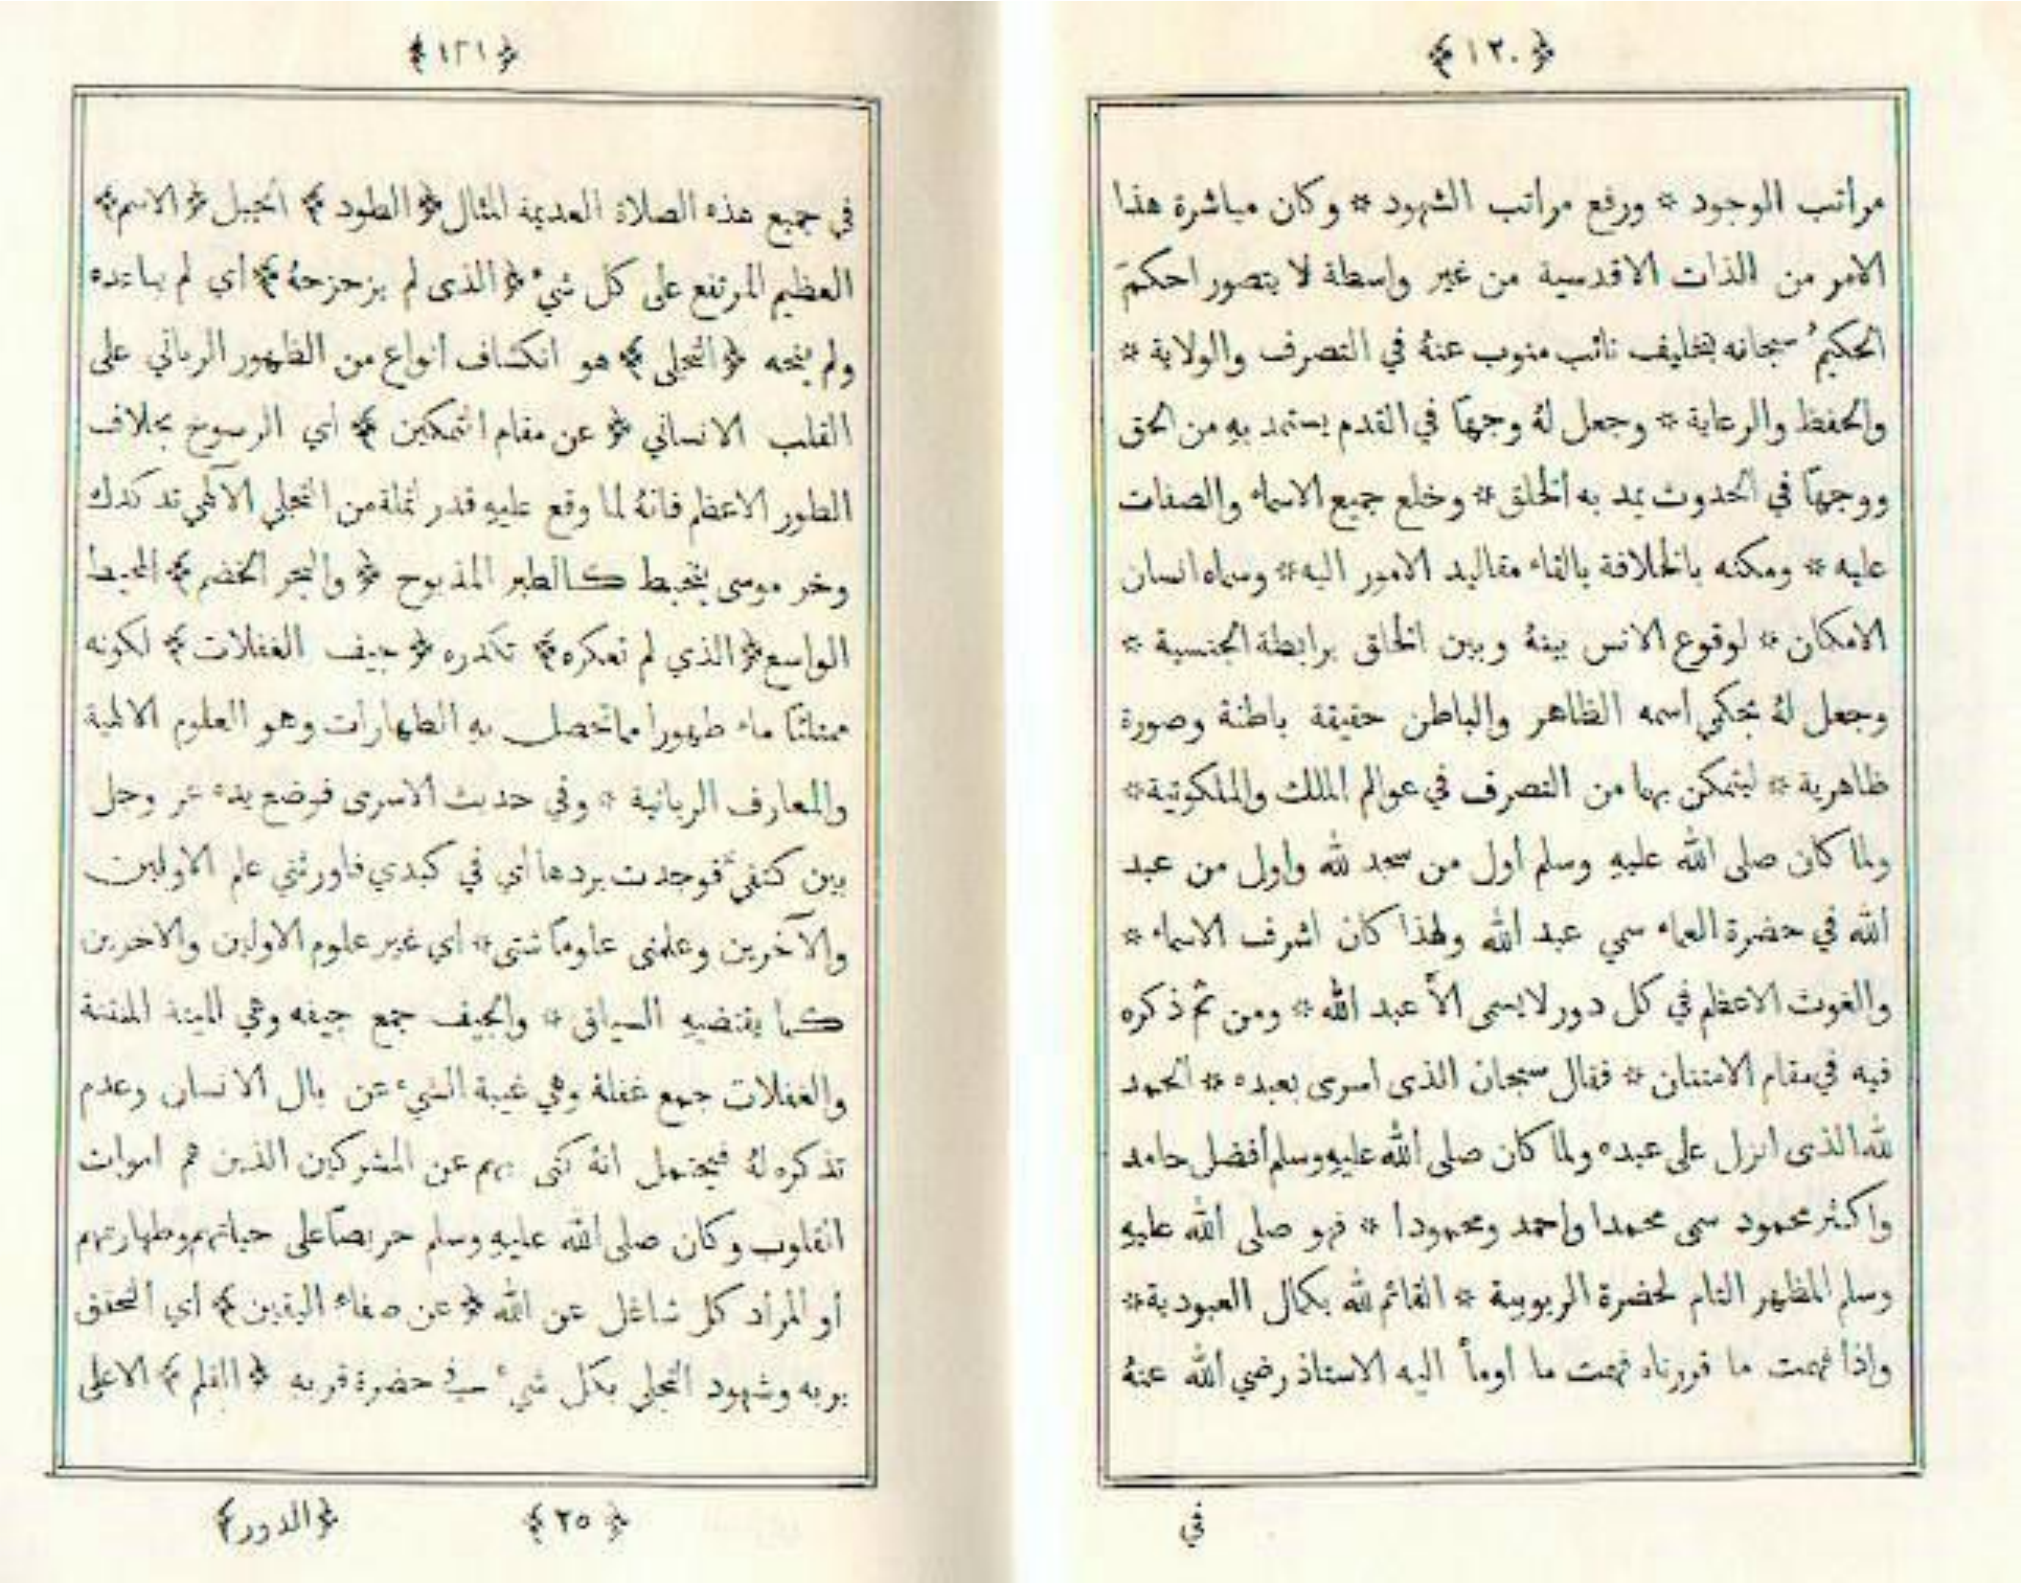 ﴿١٢٠﴾
مراتب الوجود * ورفع مراتب الشهود * وكان مباشرة هذا
الامر من الذات الاقدسية من غير واسطة لا يتصور احكمَ
الحكيمُ سبحانه بتخليف نائب منوب عنهُ في التصرف والولاية *
والحفظ والرعاية * وجعل لهُ وجهاً في القدم يستمد بهِ من الحق
ووجهاً في الحدوث يمد به الخلق * وخلع جميع الاسماء والصفات
عليه * ومكنه بالخلافة بالقاء مقاليد الامور اليه * وسماه انسان
الامكان * لوقوع الانس بينهُ وبين الخلق برابطة الجنسية *
وجعل لهُ بحكم اسمه الظاهر والباطن حقيقة باطنة وصورة
ظاهرية * ليتمكن بهما من التصرف في عوالم الملك والملكوتية *
ولما كان صلى الله عليهِ وسلم أول من سجد لله واول من عبد
الله في حضرة العماء سمي عبد الله ولهذا كان اشرف الاسماء *
والغوث الاعظم في كل دور لا يسمى الاَّ عبد الله * ومن ثم ذكره
فيه في مقام الامتنان * فقال سبحان الذى اسرى بعبده * الحمد
لله الذى انزل على عبده ولما كان صلى الله عليهِ وسلم أفضل حامد
واكثر محمود سمى محمدا واحمد ومحمودا * فهو صلى الله عليهِ
وسلم المظهر التام لحضرة الربوبية * القائم لله بكمال العبودية *
واذا فهمت ما قررناه فهمت ما اومأ اليه الاستاذ رضي الله عنهُ
في
﴿١٢١﴾
في جميع هذه الصلاة العديمة المثال ﴿الطود﴾ الجبل ﴿الاسم﴾
العظيم المرتفع على كل شيء ﴿الذى لم يزحزحهُ﴾ أي لم يباعده
ولم ينحه ﴿التجلى﴾ هو انكشاف انواع من الظهور الرباني على
القلب الانساني ﴿عن مقام التمكين﴾ أي الرسوخ بخلاف
الطور الاعظم فانهُ لما وقع عليهِ قدر نملة من التجلي الآلهي تدكدك
وخر موسى يتخبط كالطير المذبوح ﴿والبحر الخضم﴾ المحيط
الواسع ﴿الذي لم تعكره﴾ تكدره ﴿جيف الغفلات﴾ لكونه
ممتلئاً ماء طهورا مما تحصل بهِ الطهارات وهو العلوم الالهية
والمعارف الربانية * وفي حديث الاسرى فوضع يده عز وجل
بين كتفيَّ فوجدت بردها أي في كبدي فاورثني علم الاولين
والآخرين وعلمنى علوماً شتى * اي غير علوم الاولين والاخرين
كما يقتضيهِ السياق * والجيف جمع جيفه وهي الميتة المنتنة
والغفلات جمع غفلة وهي غيبة الشيء عن بال الانسان وعدم
تذكره لهُ فيحتمل انهُ كنى بهم عن المشركين الذين هم اموات
القلوب وكان صلى الله عليهِ وسلم حريصاً على حياتهم وطهارتهم
أو المراد كل شاغل عن الله ﴿عن صفاء اليقين﴾ أي التحقق
بربه وشهود التجلي بكل شيء في حضرة قربه ﴿القلم﴾ الاعلى
﴿٢٥﴾ ﴿الدور﴾